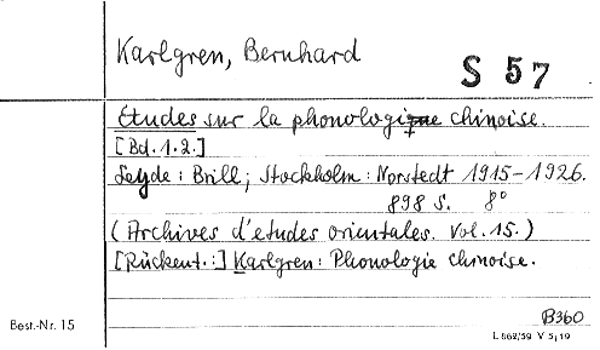 Karlgren, Bernhard
S 57
Etudes sur la phonologie chinoise.
[Bd. 1.2.]
Leyde: Brill; Stockholm: Norstedt 1915-1926.
898 S. 8°
(Archives d'etudes orientales. Vol. 15.)
[Rückent.:] Karlgren: Phonologie chinoise.
B360
Best.-Nr. 15
L 862/59 V 5/19